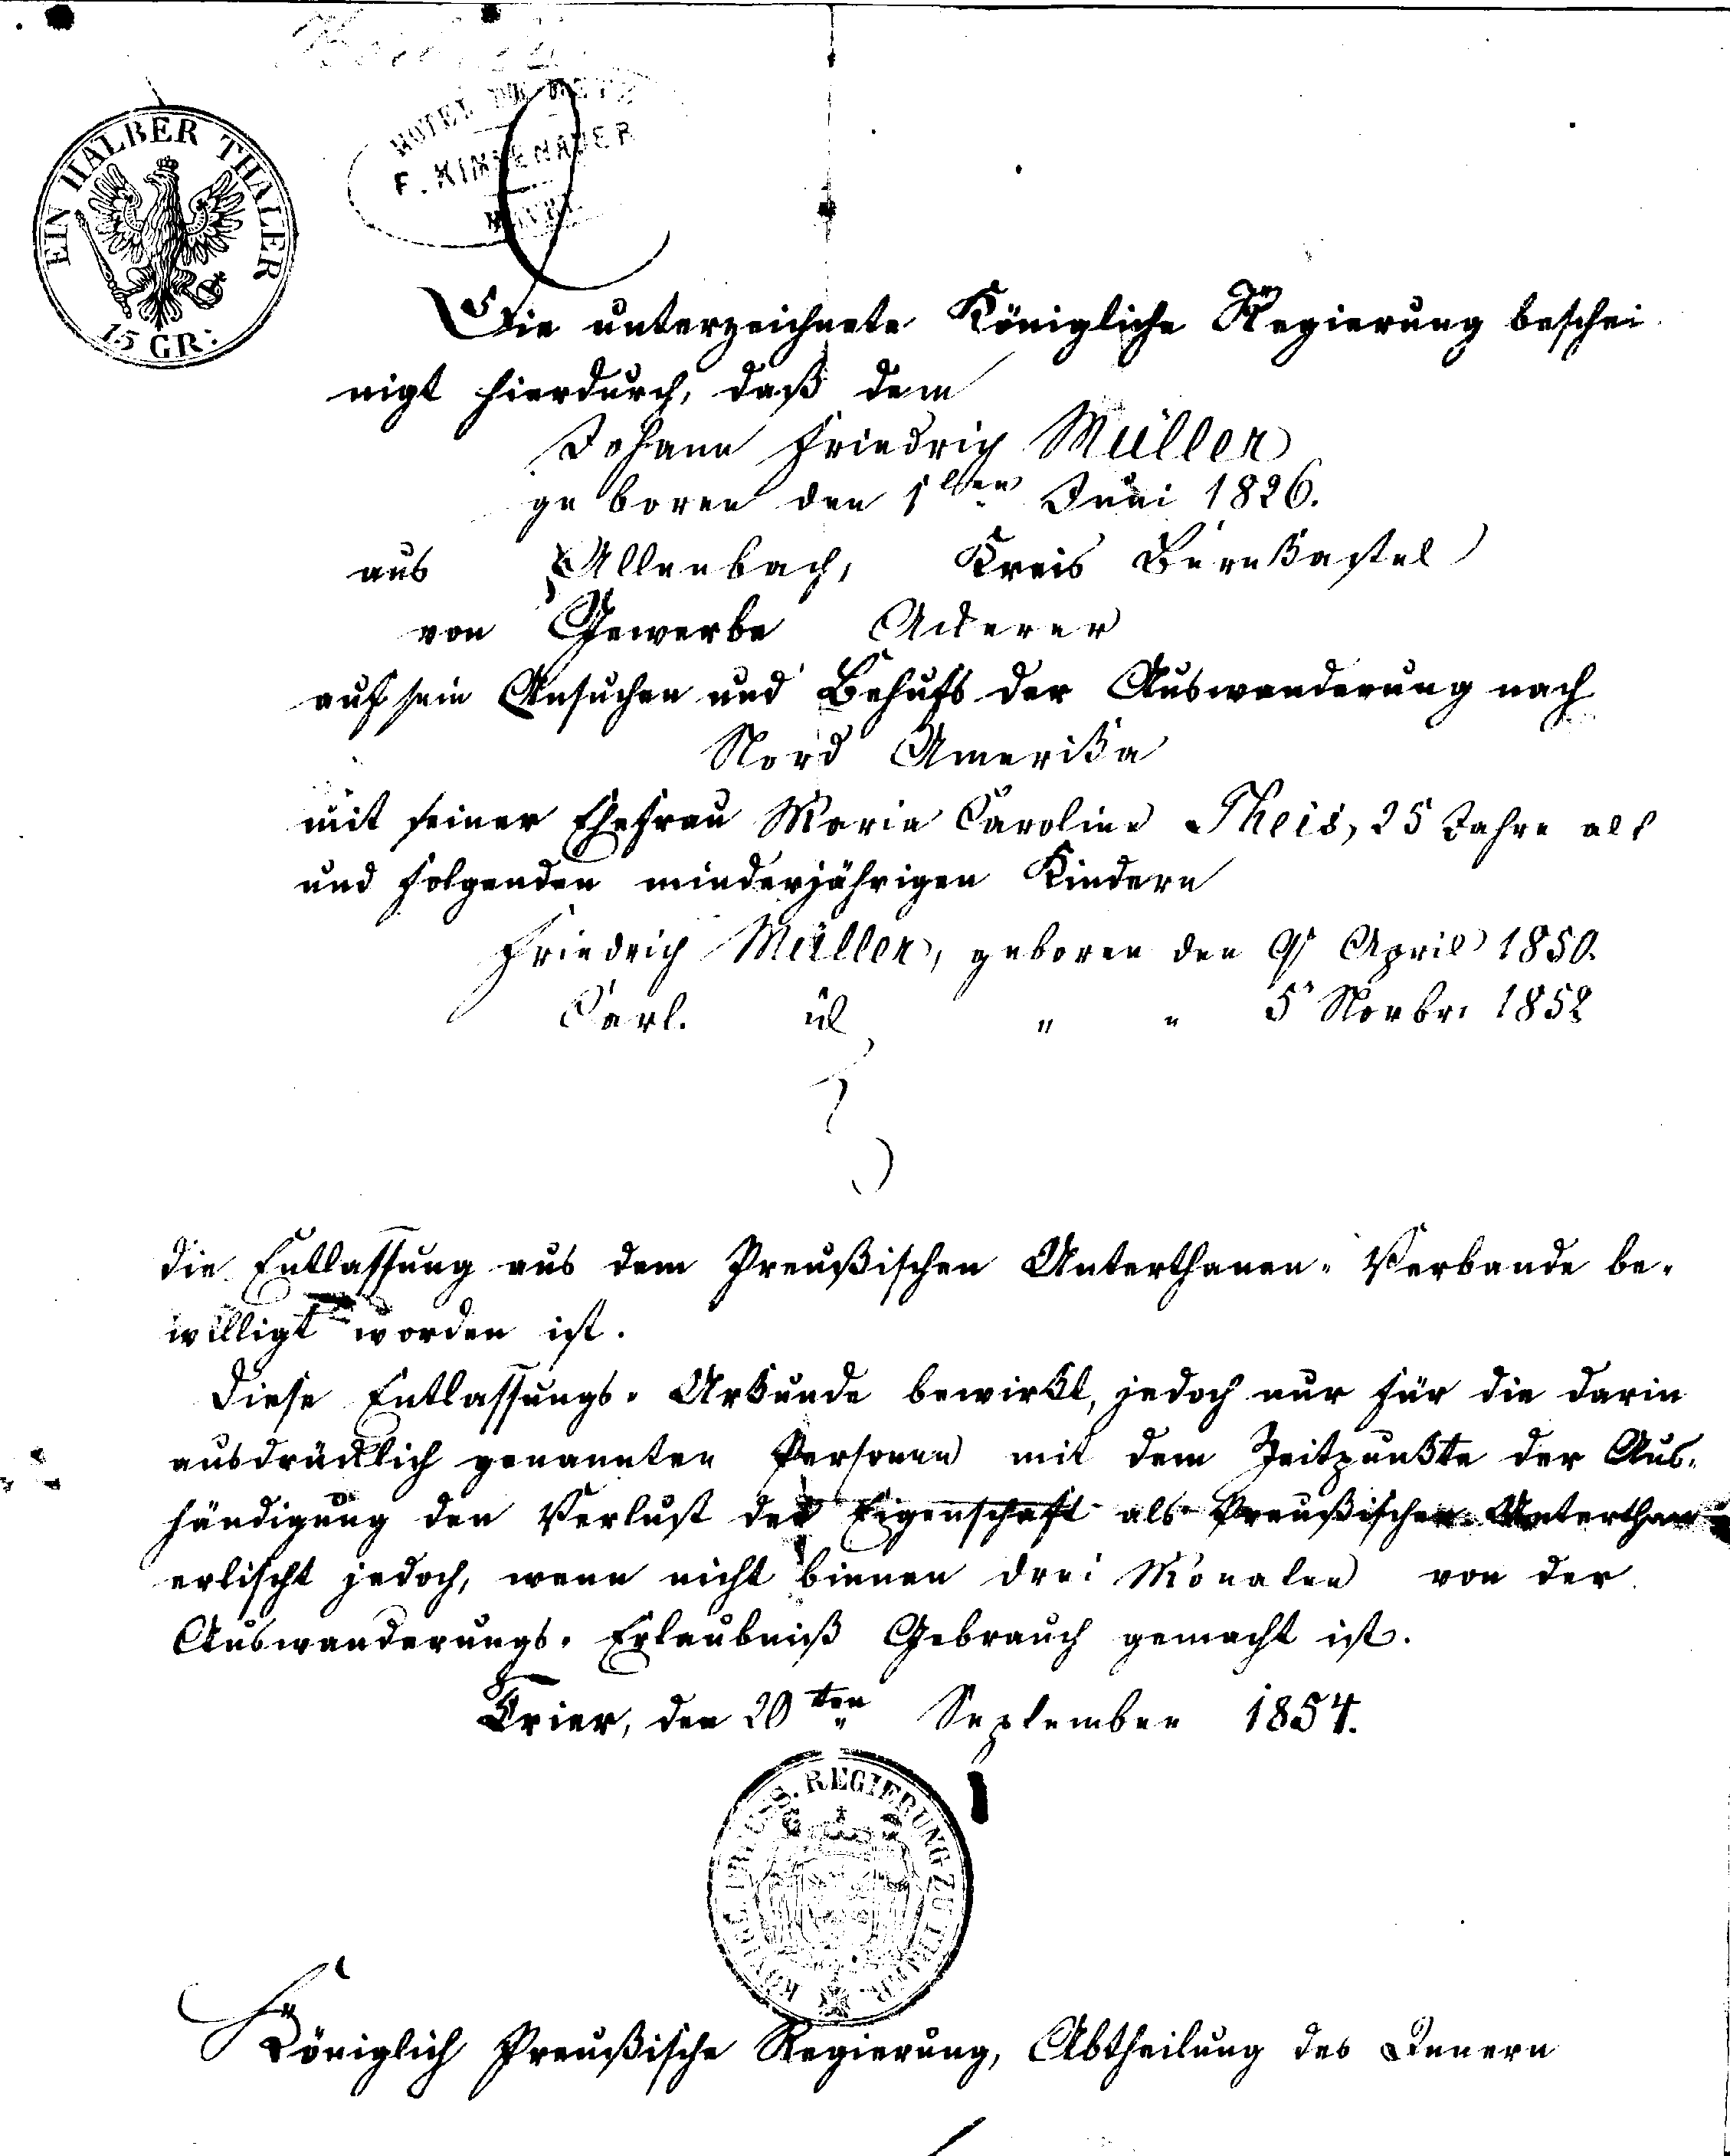 EIN HALBER THALER
15 GR:
HOTEL DE METZ
F.
Die unterzeichnete Königliche Regierung beschei
nigt hierdurch, daß dem
Johann Friedrich Müller
geboren den 1ten Juni 1826.
aus Allenbach, Kreis Bernkastel
von Gewerbe Ackerer
auf sein Ansuchen und Behufs der Auswanderung nach
Nord Amerika
mit seiner Ehefrau Maria Caroline Theis, 25 Jahre alt
und folgenden minderjährigen Kindern
Friedrich Müller, geboren den 9 April 1850.
Carl. " " 5 Novbr. 1852
die Entlassung aus dem Preußischen Unterthanen-Verbande be-
willigt worden ist.
Diese Entlassungs-Urkunde bewirkt, jedoch nur für die darin
ausdrücklich genannten Personen mit dem Zeitpunkte der Aus-
händigung den Verlust der Eigenschaft als Preußischer Unterthan
erlischt jedoch, wenn nicht binnen drei Monaten von der
Auswanderungs-Erlaubniß Gebrauch gemacht ist.
Trier, den 20ten September 1854.
KÖNIGL. PREUSS. REGIERUNG ZU TRIER.
Königlich Preußische Regierung, Abtheilung des Innern